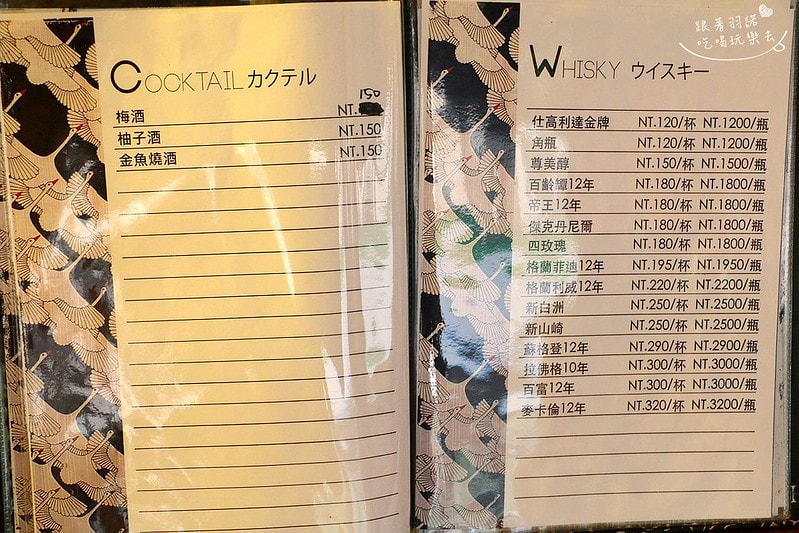 COCKTAIL カクテル
150
梅酒 NT.
柚子酒 NT.150
金魚燒酒 NT.150
跟著羽諾
吃喝玩樂去
WHISKY ウイスキー
仕高利達金牌 NT.120/杯 NT.1200/瓶
角瓶 NT.120/杯 NT.1200/瓶
尊美醇 NT.150/杯 NT.1500/瓶
百齡罈12年 NT.180/杯 NT.1800/瓶
帝王12年 NT.180/杯 NT.1800/瓶
傑克丹尼爾 NT.180/杯 NT.1800/瓶
四玫瑰 NT.180/杯 NT.1800/瓶
格蘭菲迪12年 NT.195/杯 NT.1950/瓶
格蘭利威12年 NT.220/杯 NT.2200/瓶
新白洲 NT.250/杯 NT.2500/瓶
新山崎 NT.250/杯 NT.2500/瓶
蘇格登12年 NT.290/杯 NT.2900/瓶
拉佛格10年 NT.300/杯 NT.3000/瓶
百富12年 NT.300/杯 NT.3000/瓶
麥卡倫12年 NT.320/杯 NT.3200/瓶